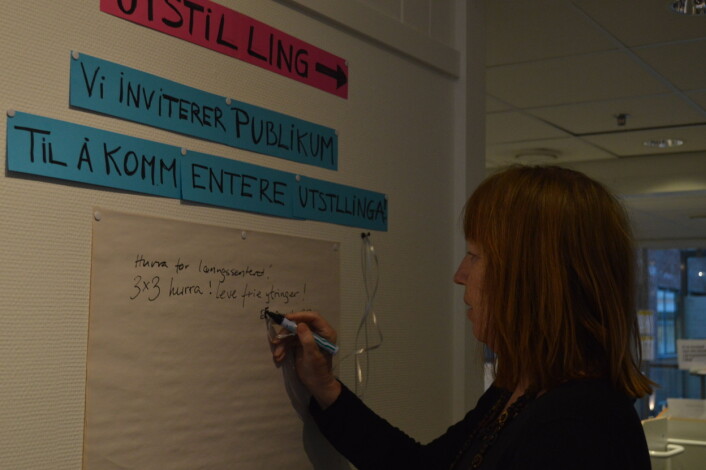 UTSTILLING →
Vi INVITERER PUBLIKUM
TIL Å KOMMENTERE UTSTLLINGA!
Hurra for læringssenteret!
3x3 hurra! Leve frie ytringer!